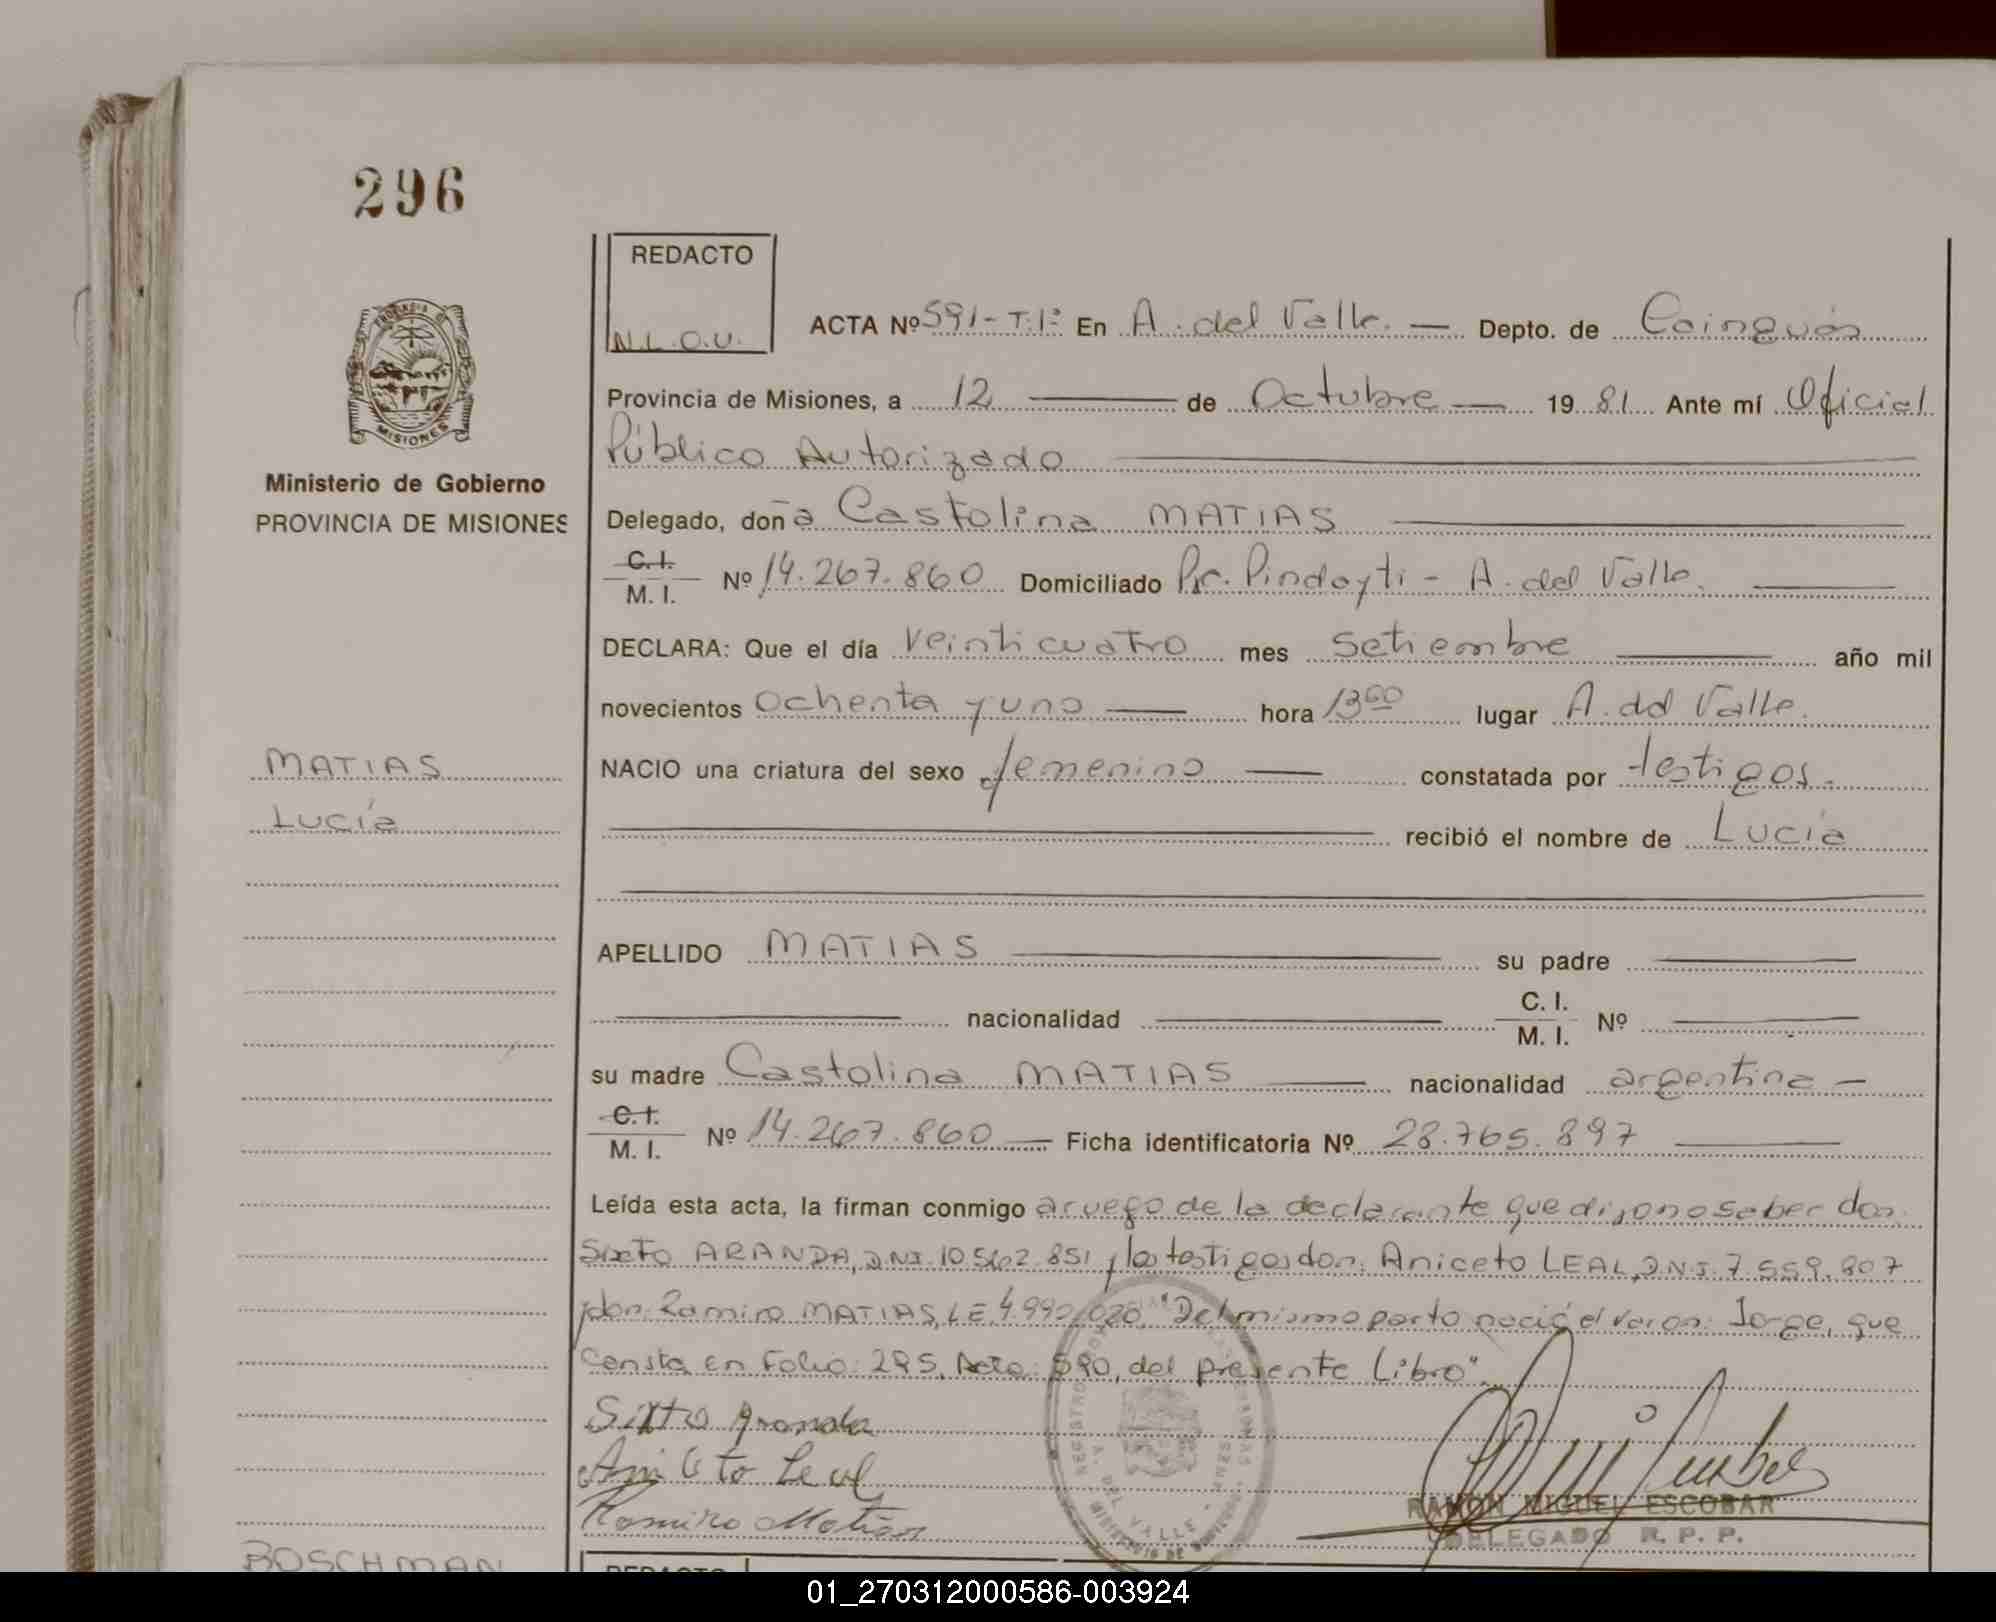 296
REDACTO
N.L.O.U.
ACTA Nº 591-T.1º En A. del Valle. — Depto. de Cainguás
Provincia de Misiones, a 12 — de Octubre — 1981 Ante mí Oficial
Público Autorizado
Ministerio de Gobierno
PROVINCIA DE MISIONES
Delegado, doña Castolina MATIAS
C.I. / M.I. Nº 14.267.860 Domiciliado Pic. Pindayti - A. del Valle.
DECLARA: Que el día veinticuatro mes setiembre — año mil
novecientos ochenta y uno — hora 13 00 lugar A. del Valle.
MATIAS
NACIO una criatura del sexo femenino — constatada por testigos.
Lucía
recibió el nombre de Lucía
APELLIDO MATIAS — su padre —
— nacionalidad — C. I. / M. I. Nº —
su madre Castolina MATIAS — nacionalidad argentina —
C.I. / M. I. Nº 14.267.860 — Ficha identificatoria Nº 28.765.897 —
Leída esta acta, la firman conmigo a ruego de la declarante que dijo no saber don.
Sixto ARANDA, D.N.I. 10.562.851 y los testigos don. Aniceto LEAL, D.N.I. 7.559.807
y don. Ramiro MATIAS, L.E. 4.992.020. "Del mismo parto nació el varon: Jorge, que
consta en Folio: 295, Acta: 590, del presente Libro".
Sixto Aranda
Aniceto Leal
Ramiro Matias
RAMON MIGUEL ESCOBAR
DELEGADO R. P. P.
BOSCHMAN
REDACTO
01_270312000586-003924